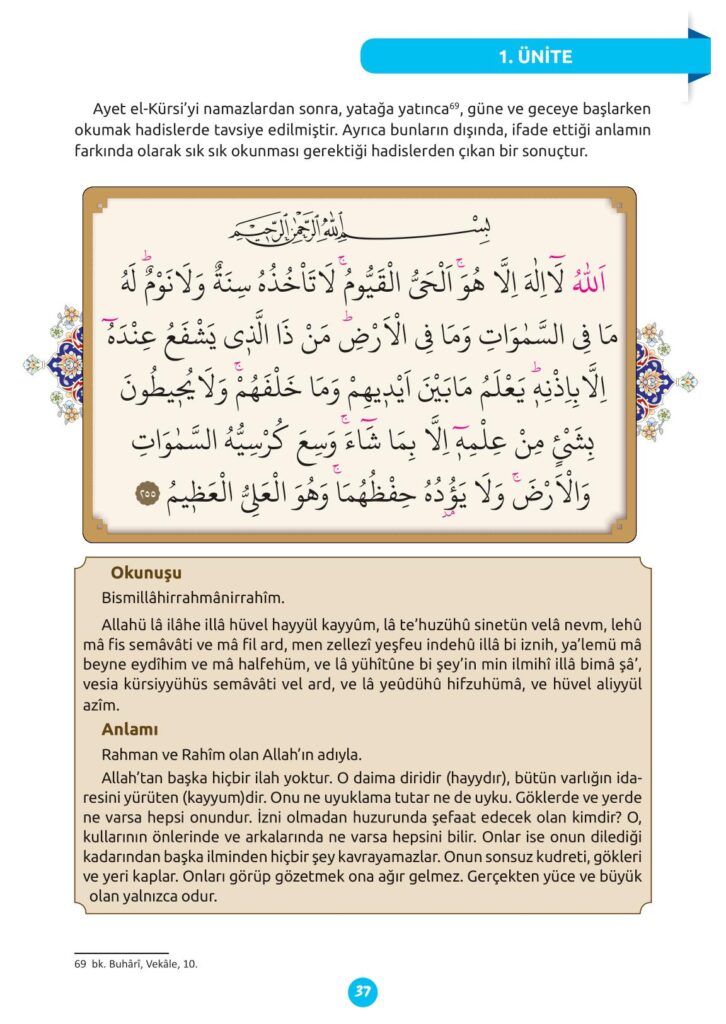 1. ÜNİTE
Ayet el-Kürsi’yi namazlardan sonra, yatağa yatınca⁶⁹, güne ve geceye başlarken
okumak hadislerde tavsiye edilmiştir. Ayrıca bunların dışında, ifade ettiği anlamın
farkında olarak sık sık okunması gerektiği hadislerden çıkan bir sonuçtur.
بِسْمِ اللّٰهِ الرَّحْمٰنِ الرَّح۪يمِ
اَللّٰهُ لَٓا اِلٰهَ اِلَّا هُوَۚ اَلْحَيُّ الْقَيُّومُۚ لَا تَأْخُذُهُ سِنَةٌ وَلَا نَوْمٌۜ لَهُ
مَا فِي السَّمٰوَاتِ وَمَا فِي الْاَرْضِۜ مَنْ ذَا الَّذ۪ي يَشْفَعُ عِنْدَهُٓ
اِلَّا بِاِذْنِه۪ۜ يَعْلَمُ مَا بَيْنَ اَيْد۪يهِمْ وَمَا خَلْفَهُمْۚ وَلَا يُح۪يطُونَ
بِشَيْءٍ مِنْ عِلْمِه۪ٓ اِلَّا بِمَا شَٓاءَۚ وَسِعَ كُرْسِيُّهُ السَّمٰوَاتِ
وَالْاَرْضَۚ وَلَا يَؤُ۫دُهُ حِفْظُهُمَاۚ وَهُوَ الْعَلِيُّ الْعَظ۪يمُ ٢٥٥
Okunuşu
Bismillâhirrahmânirrahîm.
Allahü lâ ilâhe illâ hüvel hayyül kayyûm, lâ te’huzühû sinetün velâ nevm, lehû
mâ fis semâvâti ve mâ fil ard, men zellezî yeşfeu indehû illâ bi iznih, ya’lemü mâ
beyne eydîhim ve mâ halfehüm, ve lâ yühîtûne bi şey’in min ilmihî illâ bimâ şâ’,
vesia kürsiyyühüs semâvâti vel ard, ve lâ yeûdühû hifzuhümâ, ve hüvel aliyyül
azîm.
Anlamı
Rahman ve Rahîm olan Allah’ın adıyla.
Allah’tan başka hiçbir ilah yoktur. O daima diridir (hayydır), bütün varlığın ida-
resini yürüten (kayyum)dir. Onu ne uyuklama tutar ne de uyku. Göklerde ve yerde
ne varsa hepsi onundur. İzni olmadan huzurunda şefaat edecek olan kimdir? O,
kullarının önlerinde ve arkalarında ne varsa hepsini bilir. Onlar ise onun dilediği
kadarından başka ilminden hiçbir şey kavrayamazlar. Onun sonsuz kudreti, gökleri
ve yeri kaplar. Onları görüp gözetmek ona ağır gelmez. Gerçekten yüce ve büyük
olan yalnızca odur.
69 bk. Buhârî, Vekâle, 10.
37